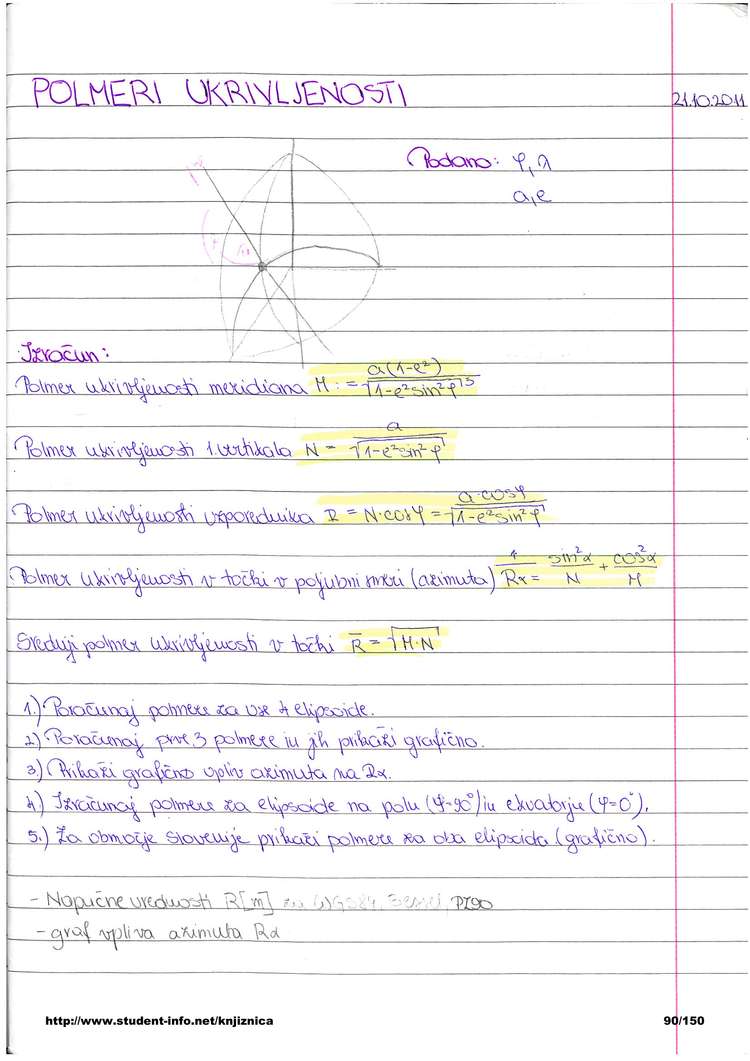 POLMERI UKRIVLJENOSTI
21.10.2011
Podano: φ, λ
a, e
Izračun:
Polmer ukrivljenosti meridiana M := a(1-e²) / √(1-e²sin²φ)³
Polmer ukrivljenosti 1. vertikala N = a / √(1-e²sin²φ)
Polmer ukrivljenosti vzporednika R = N·cosφ = a·cosφ / √(1-e²sin²φ)
Polmer ukrivljenosti v točki v poljubni smeri (azimuta) 1/Rα = sin²α/N + cos²α/M
Srednji polmer ukrivljenosti v točki R̄ = √(M·N)
1.) Poračunaj polmere za vse 4 elipsoide.
2.) Poračunaj prve 3 polmere in jih prikaži grafično.
3.) Prikaži grafično vpliv azimuta na Rα.
4.) Izračunaj polmere za elipsoide na polu (φ=90°) in ekvatorju (φ=0°).
5.) Za območje Slovenije prikaži polmere za oba elipsoida (grafično).
- Napične vrednosti R[m] za WGS84, Bessel, PZ90
- graf vpliva azimuta Rα
http://www.student-info.net/knjiznica
90/150